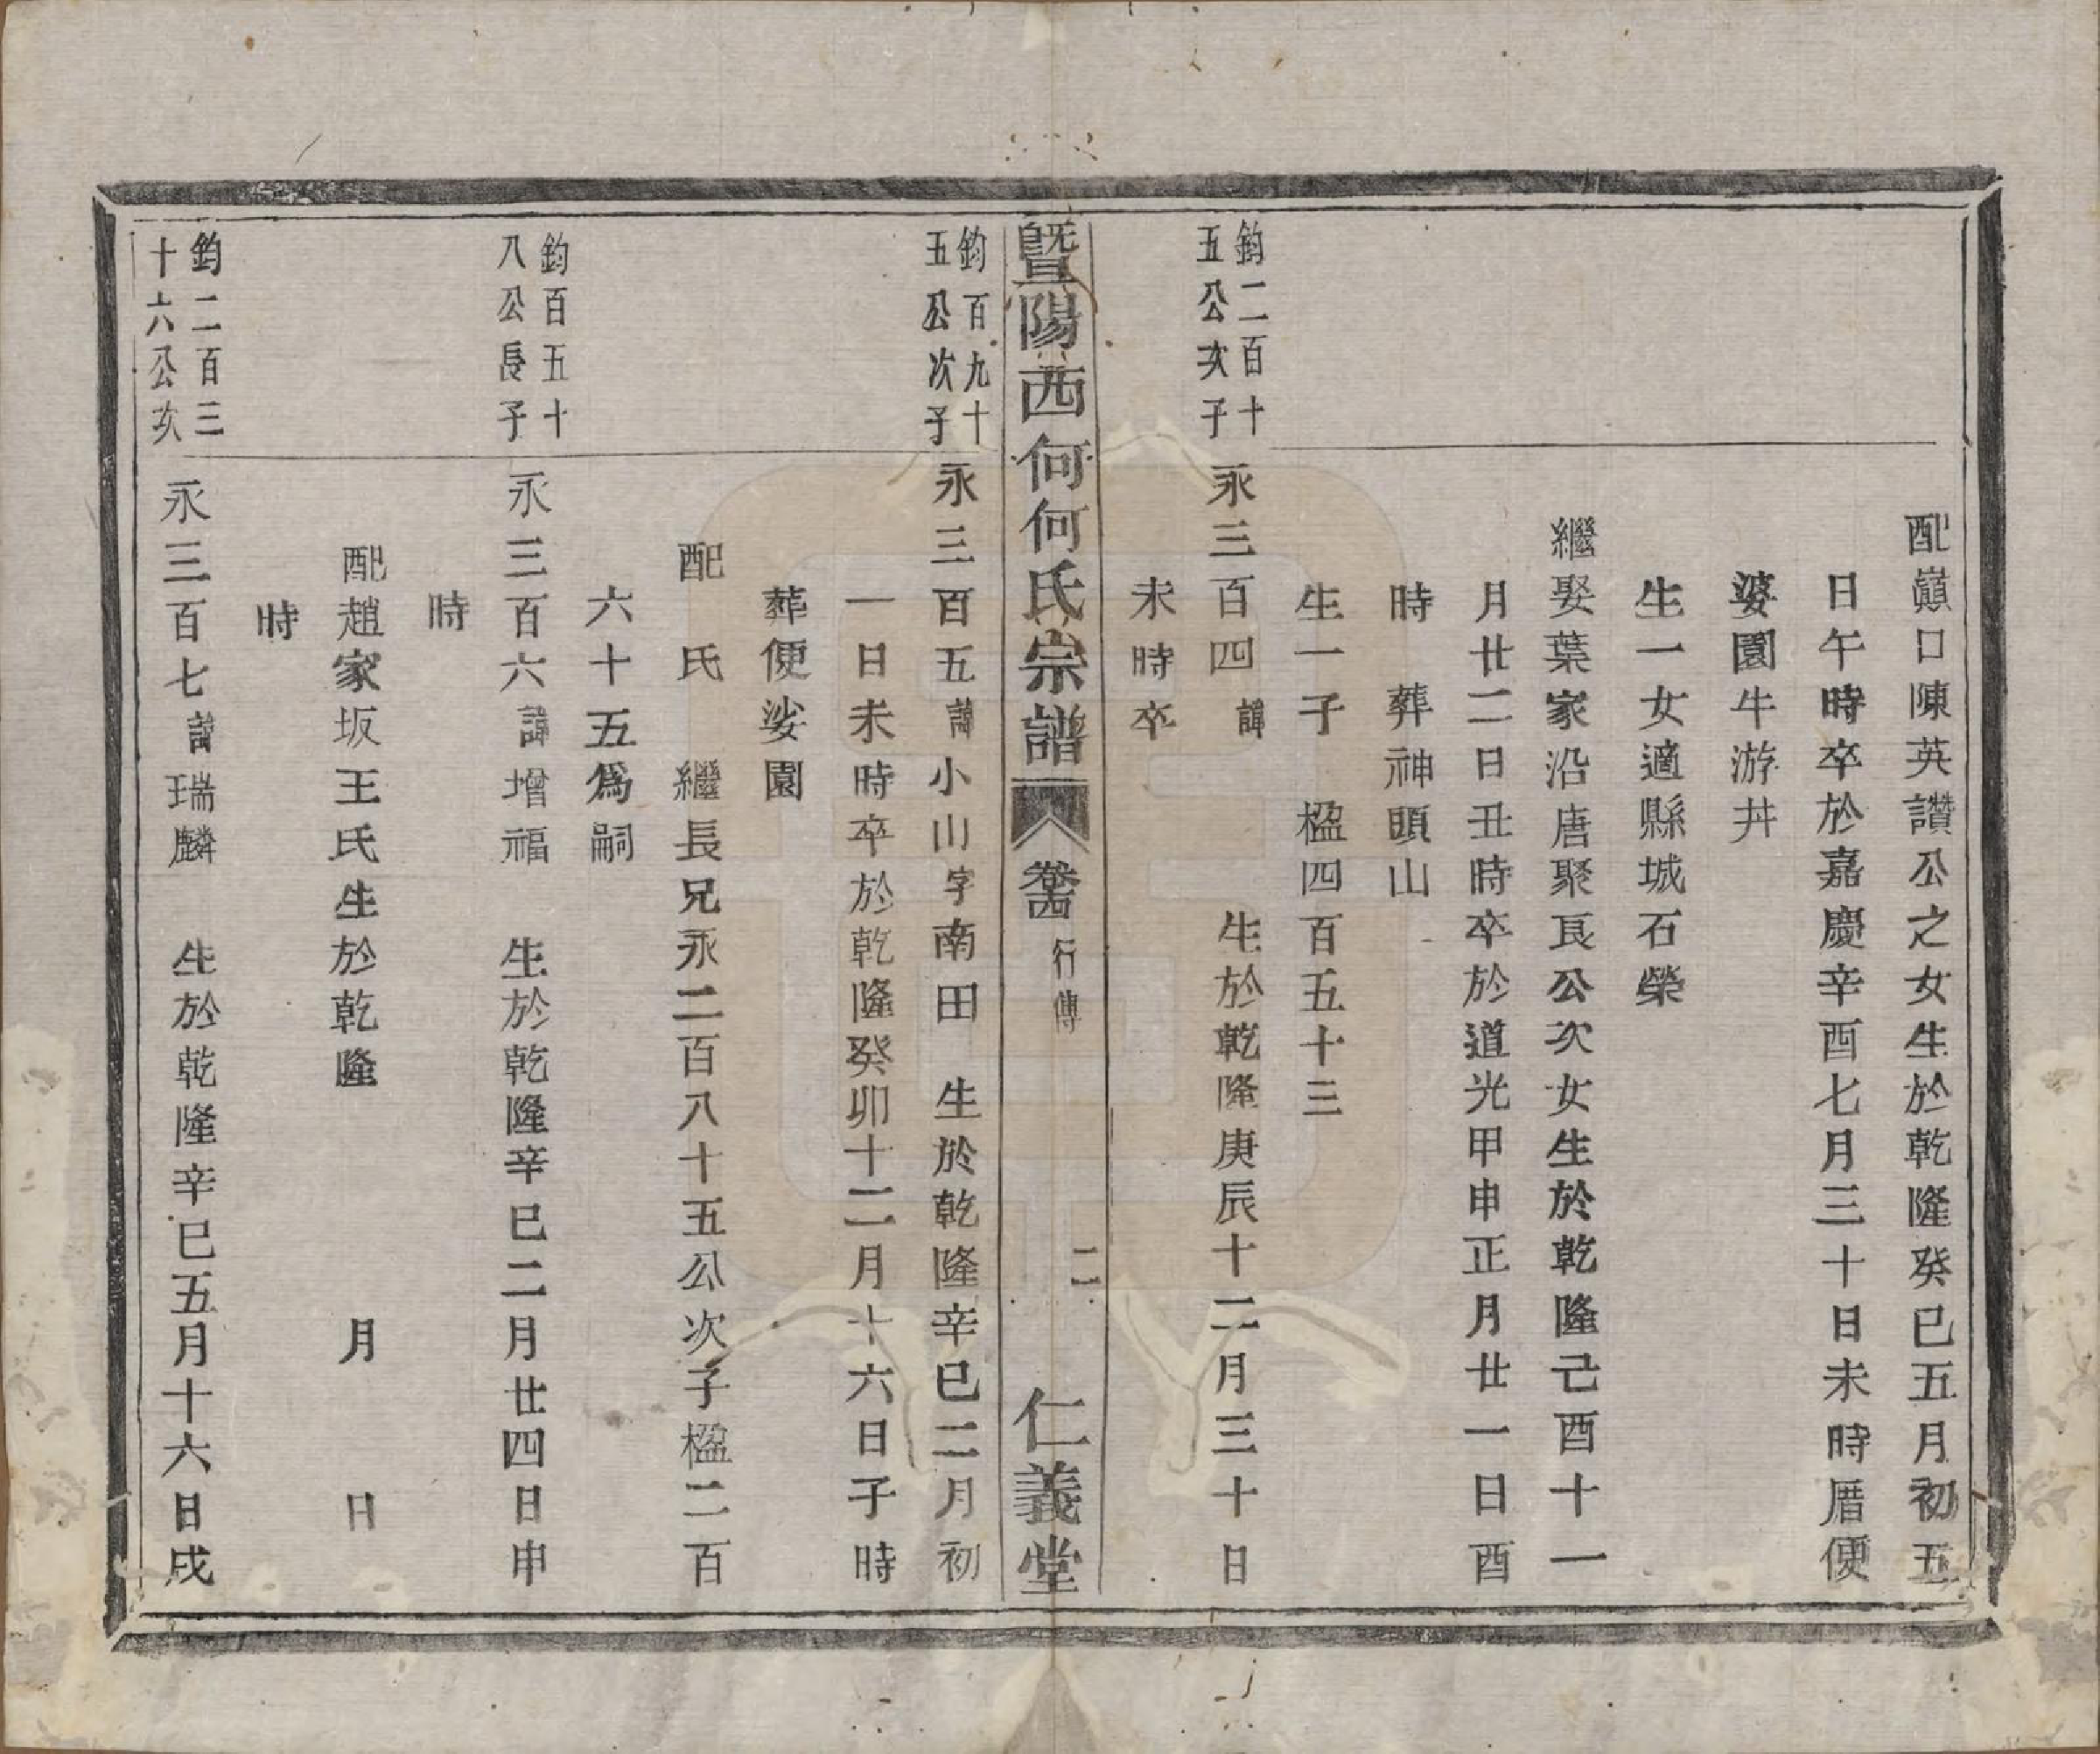 配巔口陳英讚公之女生於乾隆癸巳五月初五
日午時卒於嘉慶辛酉七月三十日未時厝便
婆園牛游井
生一女適縣城石榮
繼娶葉家沿唐聚良公次女生於乾隆己酉十一
月廿二日丑時卒於道光甲申正月廿一日酉
時　葬神頭山
生一子　楹四百五十三
鈞二百十
五公次子
永三百四諱　　生於乾隆庚辰十二月三十日
未時卒
暨陽西何何氏宗譜　卷四　行傳　二　仁義堂
鈞百九十
五公次子
永三百五諱小山字南田　生於乾隆辛巳二月初
一日未時卒於乾隆癸卯十二月十六日子時
葬便娑園
配　氏　繼長兄永二百八十五公次子楹二百
六十五為嗣
鈞百五十
八公長子
永三百六諱增福　生於乾隆辛巳二月廿四日申
時
配趙家坂王氏生於乾隆　　月　　日
時
鈞二百三
十六公次
永三百七諱瑞麟　生於乾隆辛巳五月十六日戌